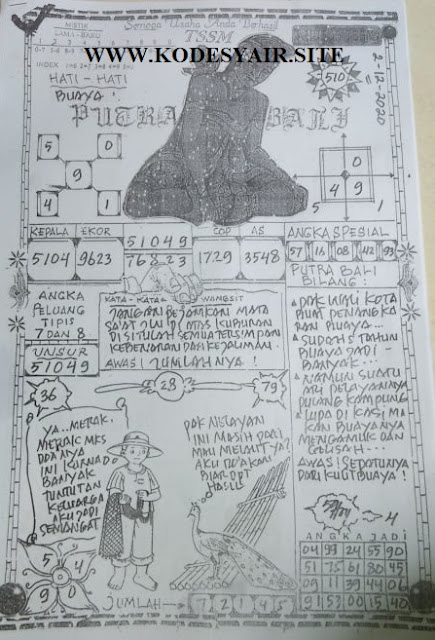 MISTIK
LAMA - BARU
Semoga Usaha Anda Berhasil
TSSM
WWW.KODESYAIR.SITE
INDEX
HATI - HATI
BUAYA !
510
2-12-2020
PUTRA BALI
5 0
9
4 1
0
4 9
5 1
KEPALA EKOR 51049 COP AS ANGKA SPESIAL
5104 9623 76823 1729 3548 57 16 08 42 93
PUTRA BALI
BILANG :
ANGKA
PELUANG
TIPIS
7 DAN 8
UNSUR
51049
KATA - KATA WANGSIT
JANGAN PEJAMKAN MATA
SAAT JULI DI ATAS KUBURAN
DI SITULAH SEMUA TERSIMPAN
KEBENARAN DAN KEJALIMAN.
AWAS! JUMLAHNYA !
PAK WALI KOTA
BUAT PENANGKA
RAN BUAYA...
SUDAH 5 TAHUN
BUAYA JADI
BANYAK...
NAMUN SUATU
HARI PELAYANNYA
PULANG KAMPUNG
LUPA DI KASI MA
KAN BUAYANYA
MENGAMUK DAN
GELISAH...
AWAS! SEPATUNYA
DARI KULIT BUAYA !
36
28
79
YA... MERAK.
MERAK MKS
DOA'NYA
INI KARNA DO
BANYAK
TUNTUTAN
KELUARGA
AKU JADI
SEMANGAT
PAK NELAYAN
INI MASIH PAGI
MAU MELAUT YA?
AKU DOAKAN
BIAR DPT
HASIL
4
ANGKA JADI
04 93 24 55 90
51 75 61 80 45
09 11 39 44 06
91 53 00 15 40
5 4
9 0
JUMLAH 7 2 1 9 5